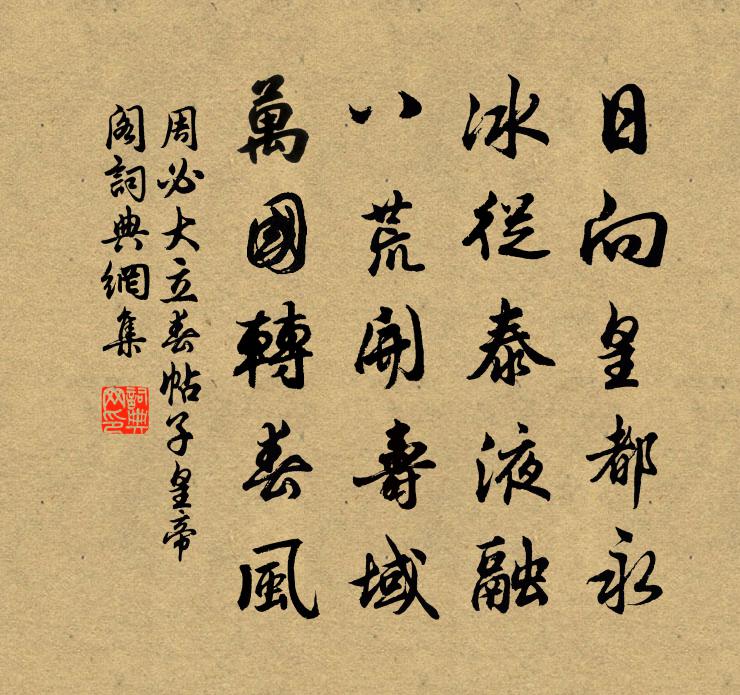 日向皇都永
冰從泰液融
八荒開壽域
萬國轉春風
周必大立春帖子皇帝
閣詞典網集
詞典網印